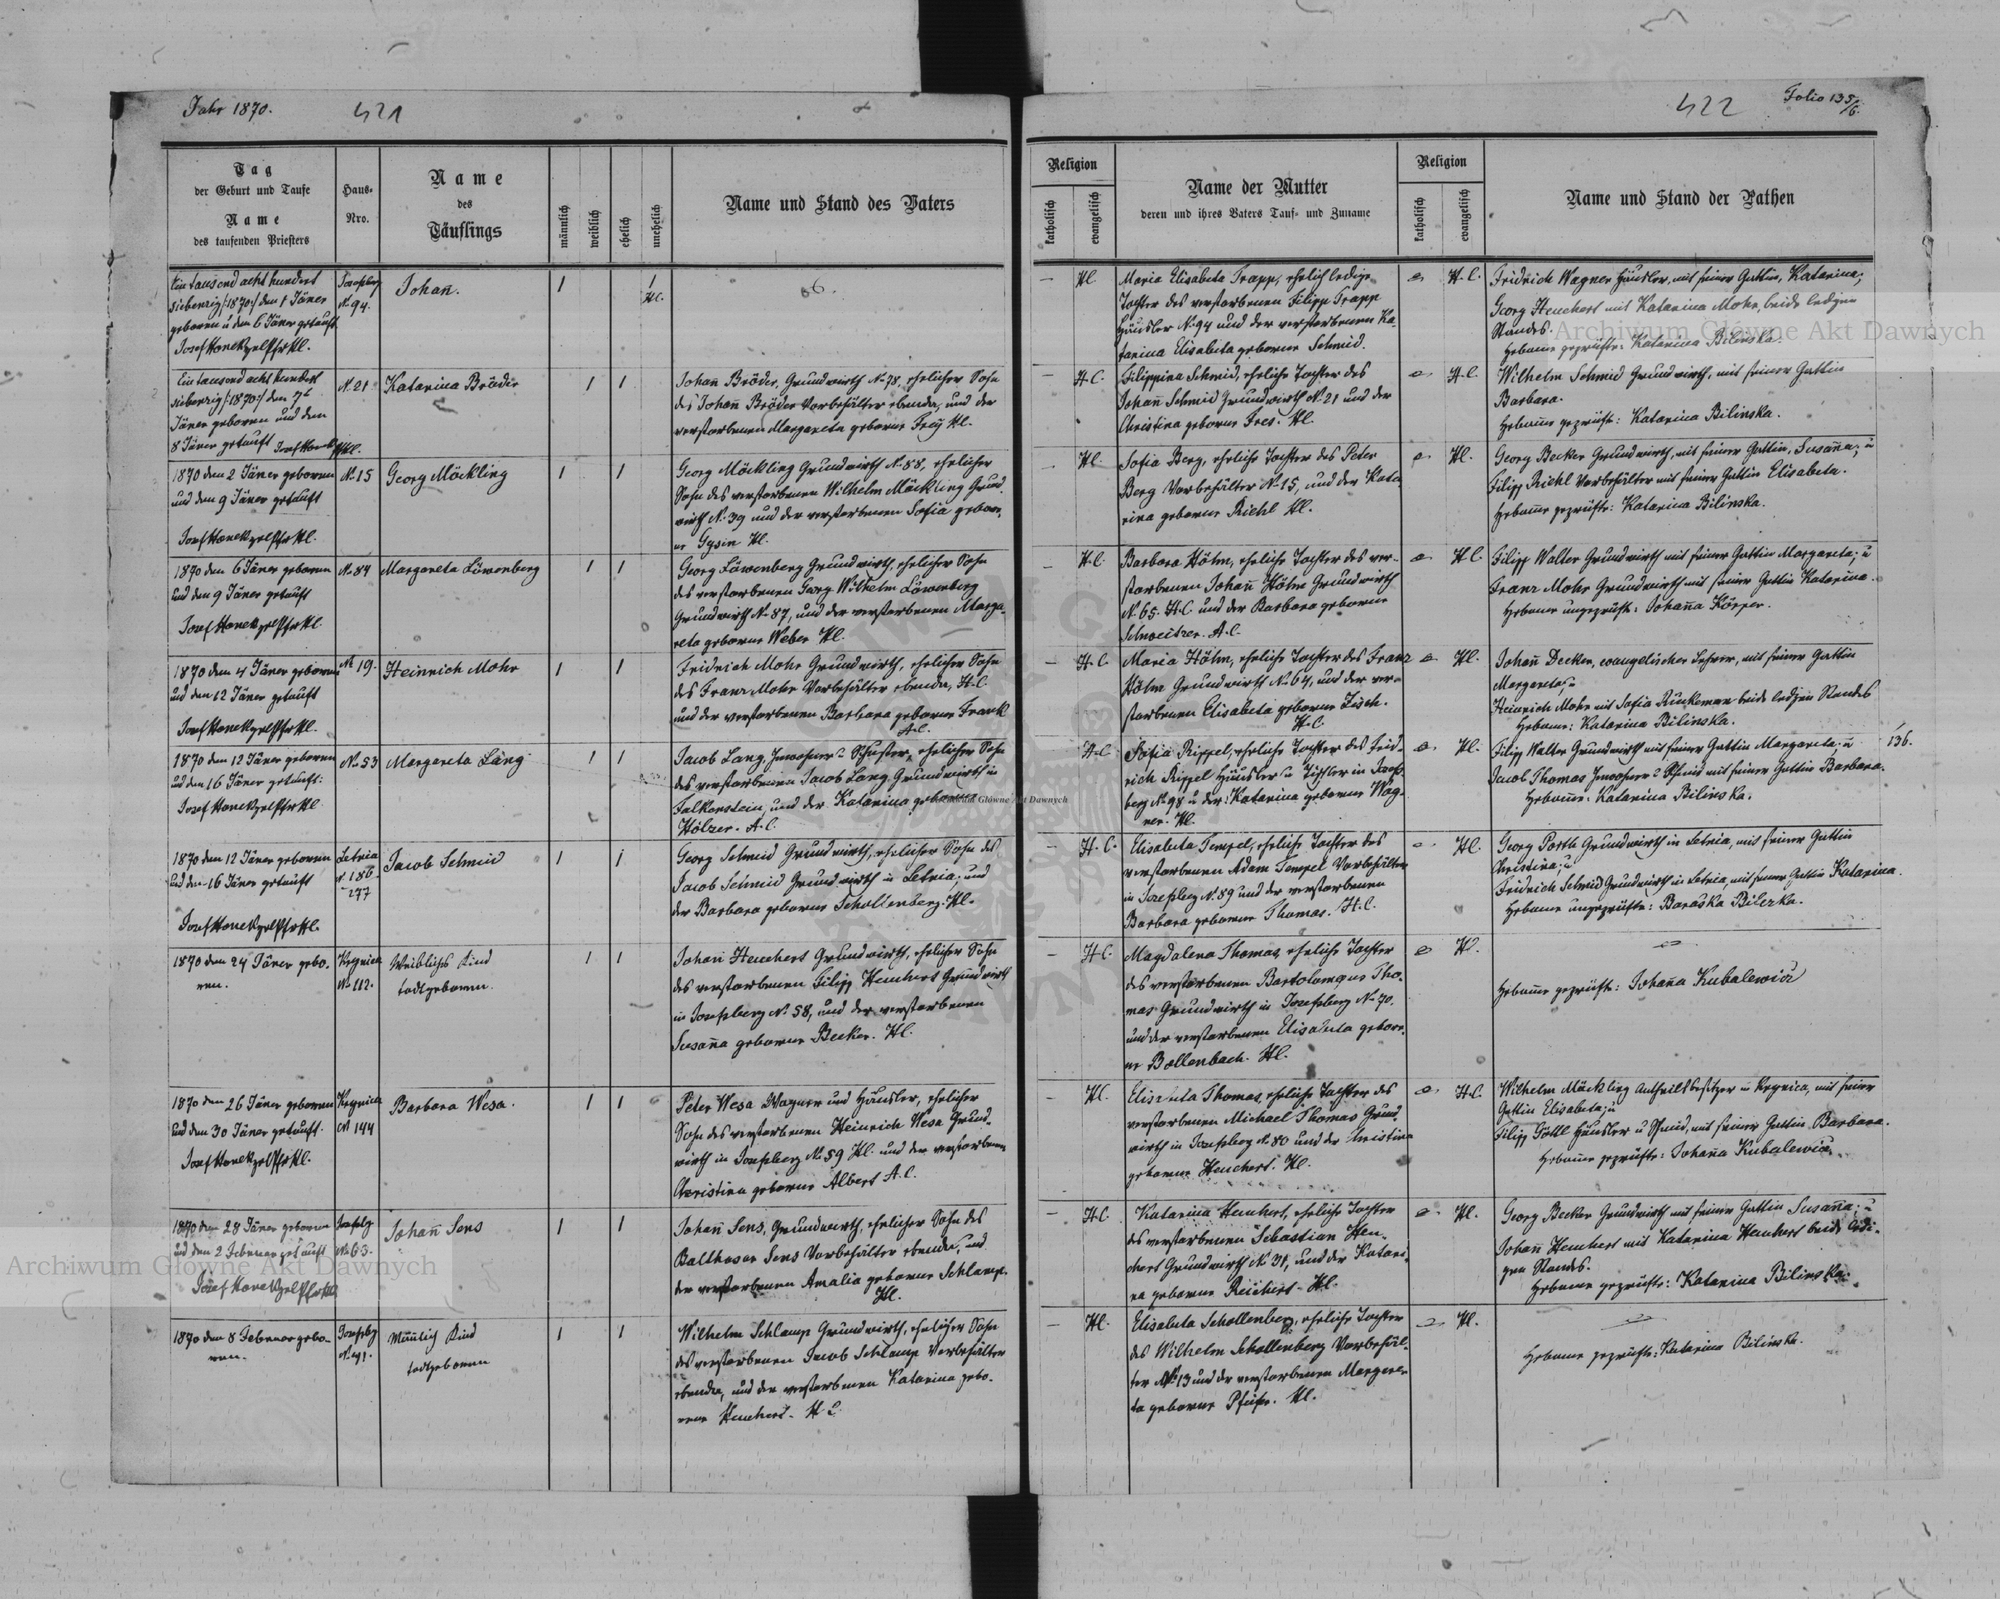 Jahr 1870.
421
422
Folio 135/6.
Tag
der Geburt und Taufe
Name
des taufenden Priesters
Haus-
Nro.
Name
des
Täuflings
männlich
weiblich
ehelich
unehelich
Name und Stand des Vaters
Religion
katholisch
evangelisch
Name der Mutter
deren und ihres Vaters Tauf- und Zuname
Religion
katholisch
evangelisch
Name und Stand der Pathen
Ein tausend acht hundert
siebenzig /:1870:/ den 1 Jäner
geboren u den 6 Jäner getauft
Josefsberg
N. 94.
Johañ.
Maria Elisabeta Trapp, ehelich ledige
Tochter des verstorbenen Filipp Trapp
Häusler N. 94 und der verstorbenen Ka-
tarina Elisabeta geborne Schmid.
H.C.
Fridrich Wagner Häusler, mit seiner Gattin, Katarina;
Georg Heuchert mit Katarina Mohr, beide ledigen
Standes.
Hebame geprüfte: Katarina Bilinska.
Ein tausend acht hundert
siebenzig /:1870:/ den
Jäner geboren und den
8 Jäner getauft
N. 21
Katarina Bröder
Johañ Bröder, Grundwirth N. 78, ehelicher Sohn
des Johañ Bröder Vorbehälter ebenda, und der
verstorbenen Margareta geborne Frey H.C.
H.C.
Filippina Schmid, eheliche Tochter des
Johañ Schmid Grundwirth N. 21 und der
Christina geborne Fres. H.C.
H.C.
Wilhelm Schmid Grundwirth, mit seiner Gattin
Barbara.
Hebame geprüfte: Katarina Bilinska.
1870 den 2 Jäner geboren
und den 9 Jäner getauft
N. 15
Georg Möckling
Georg Möckling Grundwirth N. 88, ehelicher
Sohn des verstorbenen Wilhelm Möckling Grund-
wirth N. 39 und der verstorbenen Sofia gebor-
ne Gysin H.C.
H.C.
Sofia Berg, eheliche Tochter des Peter
Berg Vorbehälter N. 15, und der Kata
rina geborne Riehl H.C.
H.C.
Georg Becker Grundwirth, mit seiner Gattin, Susaña; u
Filipp Riehl Vorbehälter mit seiner Gattin Elisabeta.
Hebame geprüfte: Katarina Bilinska.
1870 den 6 Jäner geboren
und den 9 Jäner getauft
N. 84
Margareta Löwenberg
Georg Löwenberg Grundwirth, ehelicher Sohn
des verstorbenen Georg Wilhelm Löwenberg
Grundwirth N. 87, und der verstorbenen Marga-
reta geborne Weber H.C.
H.C.
Barbara Höhn, eheliche Tochter des ver-
storbenen Johañ Höhn Grundwirth
N. 65. H.C. und der Barbara geborne
Schweitzer. A.C.
H.C.
Filipp Walter Grundwirth mit seiner Gattin Margareta; u
Franz Mohr Grundwirth mit seiner Gattin Katarina.
Hebame ungeprüfte: Johaña Körper.
1870 den 4 Jäner geboren
und den 12 Jäner getauft
N. 19.
Heinrich Mohr
Fridrich Mohr Grundwirth, ehelicher Sohn
des Franz Mohr Vorbehälter ebenda, H.C.
und der verstorbenen Barbara geborne Frank
A.C.
H.C.
Maria Höhn, eheliche Tochter des Franz
Höhn Grundwirth N. 64, und der ver-
storbenen Elisabeta geborne Zisch.
H.C.
H.C.
Johañ Decker, evangelischer Lehrer, mit seiner Gattin
Margareta; u
Heinrich Mohr mit Sofia Runkemer beide ledigen Standes
Hebame: Katarina Bilinska.
1870 den 12 Jäner geboren
und den 16 Jäner getauft:
N. 53
Margareta Lang
Jacob Lang, Inwohner u Schuster, ehelicher Sohn
des verstorbenen Jacob Lang, Grundwirth in
Falkenstein, und der Katarina geborne
Hölzer. A.C.
A.C.
Sofia Rippel, eheliche Tochter des Frid-
rich Rippel Häusler u Tischler in Josefs-
berg N. 98 u der: Katarina geborne Wag-
ner. H.C.
H.C.
Filipp Walter Grundwirth mit seiner Gattin Margareta; u
Jacob Thomas Inwohner u Schmid mit seiner Gattin Barbara.
Hebame: Katarina Bilinska.
136.
1870 den 12 Jäner geboren
und den 16 Jäner getauft
Letnia
N. 186
277
Jacob Schmid
Georg Schmid Grundwirth, ehelicher Sohn des
Jacob Schmid Grundwirth in Letnia; und
der Barbara geborne Schollenberg. H.C.
H.C.
Elisabeta Tempel, eheliche Tochter des
verstorbenen Adam Tempel Vorbehälter
in Josefsberg N. 89 und der verstorbenen
Barbara geborne Thomas. H.C.
H.C.
Georg Porth Grundwirth in Letnia, mit seiner Gattin
Christina; u
Fridrich Schmid Grundwirth in Letnia, mit seiner Gattin Katarina.
Hebame ungeprüfte: Baraska Bilezka.
1870 den 24 Jäner gebo-
ren.
Krynica
N. 112.
Weibliches Kind
todtgeboren.
Johañ Heuchert Grundwirth, ehelicher Sohn
des verstorbenen Filipp Heuchert Grundwirth
in Josefsberg N. 58, und der verstorbenen
Susaña geborne Becker. H.C.
H.C.
Magdalena Thomas, eheliche Tochter
des verstorbenen Bartolomaus Tho-
mas Grundwirth in Josefsberg N. 70.
und der verstorbenen Elisabeta gebor-
ne Bollenbach. H.C.
H.C.
Hebame geprüfte: Johaña Kubalewicz
1870 den 26 Jäner geboren
und den 30 Jäner getauft.
Krynica
N. 144
Barbara Wesa.
Peter Wesa Wagner und Häusler, ehelicher
Sohn des verstorbenen Heinrich Wesa Grund-
wirth in Josefsberg N. 59 H.C. und der verstorbenen
Christina geborne Albert A.C.
H.C.
Elisabeta Thomas, eheliche Tochter des
verstorbenen Michael Thomas Grund-
wirth in Josefsberg N. 80 und der Christina
geborne Heuchert. H.C.
H.C.
Wilhelm Möckling Antheilsbesitzer in Krynica, mit seiner
Gattin Elisabeta; u
Filipp Göttl Häusler u Schmid, mit seiner Gattin, Barbara.
Hebame geprüfte: Johaña Kubalewicz.
1870 den 28 Jäner geboren
und den 2 Februar getauft
Josefsbg
N. 63.
Johañ Sens
Johañ Sens, Grundwirth, ehelicher Sohn des
Balthasar Sens Vorbehälter ebenda, und
der verstorbenen Amalia geborne Schlamp.
H.C.
H.C.
Katarina Heuchert, eheliche Tochter
des verstorbenen Sebastian Heu-
chert Grundwirth N. 31, und der Katari-
na geborne Reichert. H.C.
H.C.
Georg Becker Grundwirth mit seiner Gattin Susaña; u
Johañ Heuchert mit Katarina Heuchert beide ledi-
gen Standes.
Hebame geprüfte: Katarina Bilinska.
1870 den 8 Februar gebo-
ren.
Josefsbg
N. 41.
Mänlich Kind
todtgeboren
Wilhelm Schlamp Grundwirth, ehelicher Sohn
des verstorbenen Jacob Schlamp Vorbehälter
ebenda, und der verstorbenen Katarina gebo-
rene Heuchert. H.C.
H.C.
Elisabeta Schollenberg, eheliche Tochter
des Wilhelm Schollenberg Vorbehäl-
ter N. 13 und der verstorbenen Margare-
ta geborne Pfeifer. H.C.
H.C.
Hebame geprüfte: Katarina Bilinska.
Archiwum Główne Akt Dawnych
Archiwum Główne Akt Dawnych
Archiwum Główne Akt Dawnych